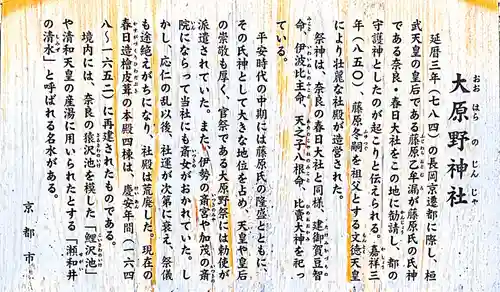 大原野神社
おおはらのじんじゃ
延暦三年(七八四)の長岡京遷都に際し、桓
武天皇の皇后である藤原乙牟漏が藤原氏の氏神
である奈良・春日大社をこの地に勧請し、都の
守護神としたのが起こりと伝えられる。嘉祥三
年(八五〇)、藤原冬嗣を祖父とする文徳天皇
により壮麗な社殿が造営された。
祭神は、奈良の春日大社と同様、建御賀豆智
命、伊波比主命、天之子八根命、比賣大神を祀っ
ている。
平安時代の中期には藤原氏の隆盛とともに、
その氏神として大きな地位を占め、天皇や皇后
の崇敬も厚く、官祭である大原野祭には勅使が
派遣されていた。また、伊勢の斎宮や加茂の斎
院にならって当社にも斎女がおかれていた。し
かし、応仁の乱以後、社運が次第に衰え、祭儀
も途絶えがちになり、社殿は荒廃した。現在の
春日造檜皮葺の本殿四棟は、慶安年間(一六四
八〜一六五二)に再建されたものである。
境内には、奈良の猿沢池を模した「鯉沢池」
や清和天皇の産湯に用いられたとする「瀬和井
の清水」と呼ばれる名水がある。
京都市